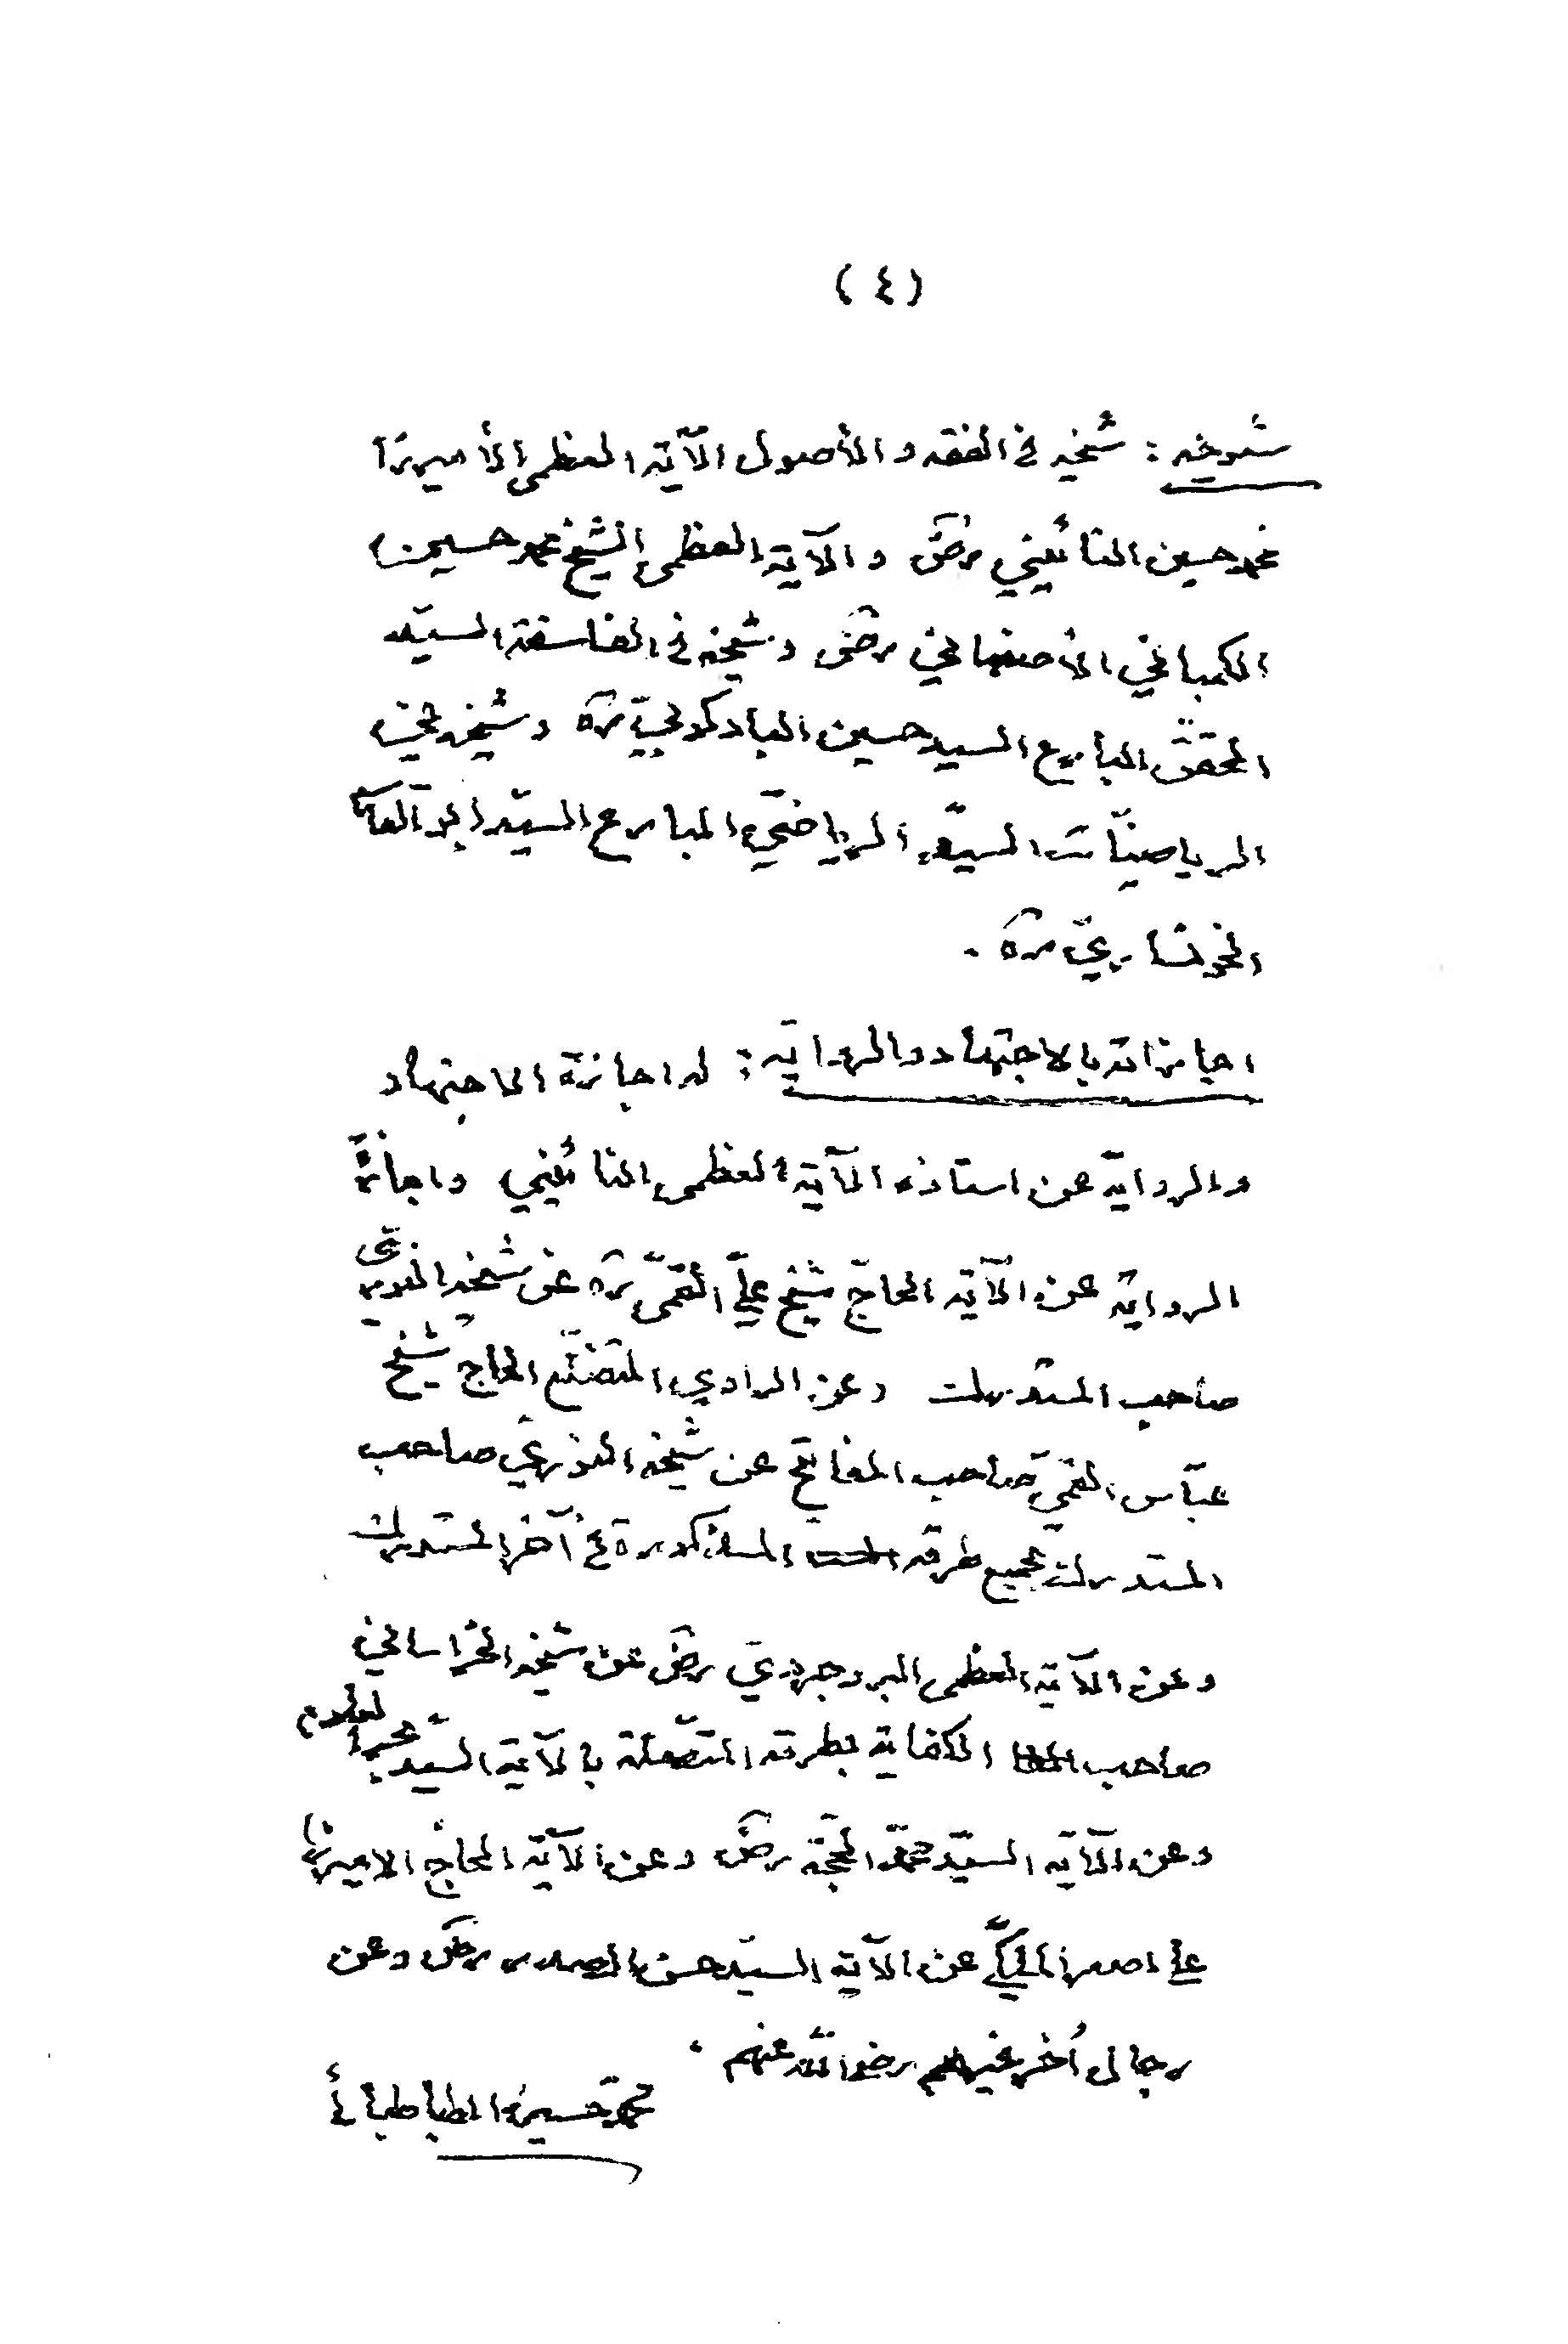 (٤)
شيوخه : شيخه في الفقه والأصول الآية العظمى الأميرزا
محمد حسين النائيني رضَ والآية العظمى الشيخ محمد حسين
الكمباني الأصفهاني رضَ وشيخه في الفلسفة السيّد
المحقّق البارع السيد حسين البادكوبيّ ره وشيخه في
الرياضيّات السيّد الرياضيّ البارع السيّد ابو القاسم
الخونساريّ ره .
اجازاته بالاجتهاد والرواية : له اجازة الاجتهاد
والرواية عن استاذه الآية العظمى النائيني واجازة
الرواية عن الآية الحاجّ شيخ عليّ القمّيّ ره عن شيخه النوريّ
صاحب المستدرك وعن الراوي المتضلّع الحاج شيخ
عبّاس القمّيّ صاحب المفاتيح عن شيخه النوريّ صاحب
المستدرك بجميع طرقه المذكورة في آخر المستدرك
وعن الآية العظمى البروجرديّ رضَ عن شيخه الخراساني
صاحب الكفاية بطرقه المتّصلة بالآية السيّد بحر العلوم
وعن الآية السيّد محمّد الحجّة رضَ وعن الآية الحاجّ الاميرزا
علي اصغر الملكيّ عن الآية السيّد حسن الصدر رضَ وعن
رجال اُخر غيرهم رضوان الله عنهم .
محمد حسين الطباطبائي